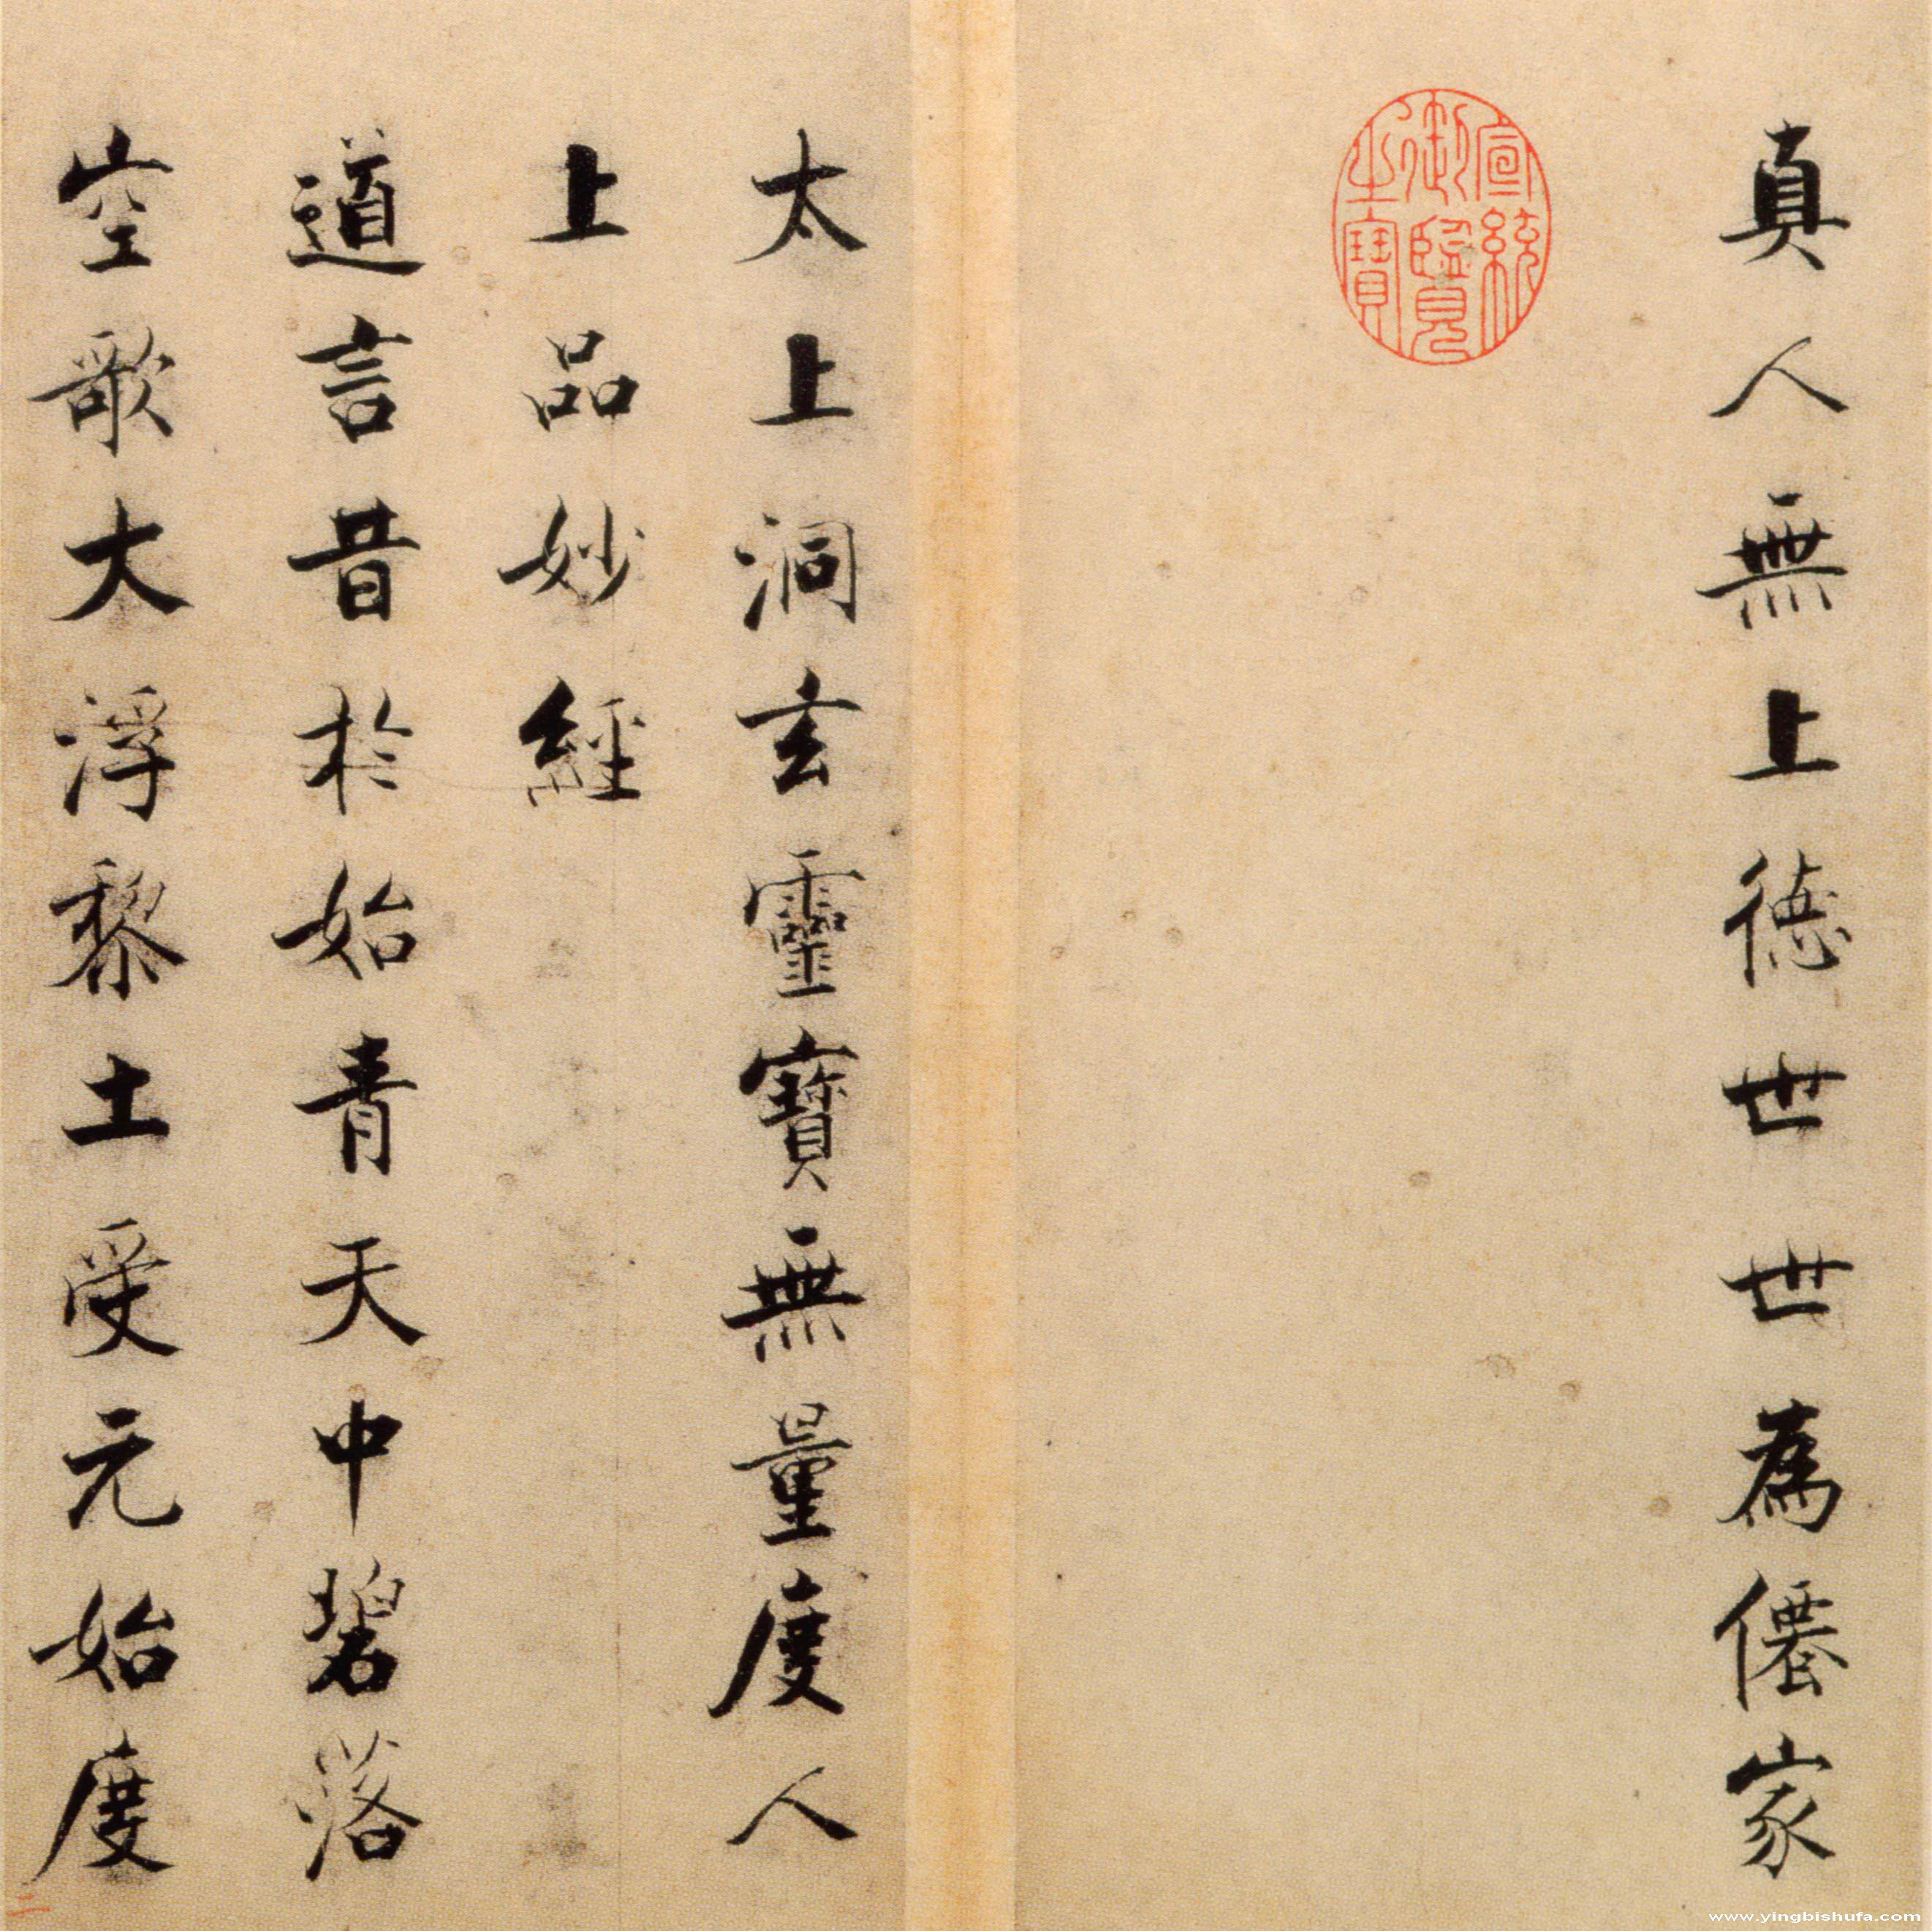 真人無上德世世為僊家
宣統
御覽
之寶
太上洞玄靈寶無量度人
上品妙經
道言昔於始青天中碧落
空歌大浮黎土受元始度
二
www.yingbishufa.com